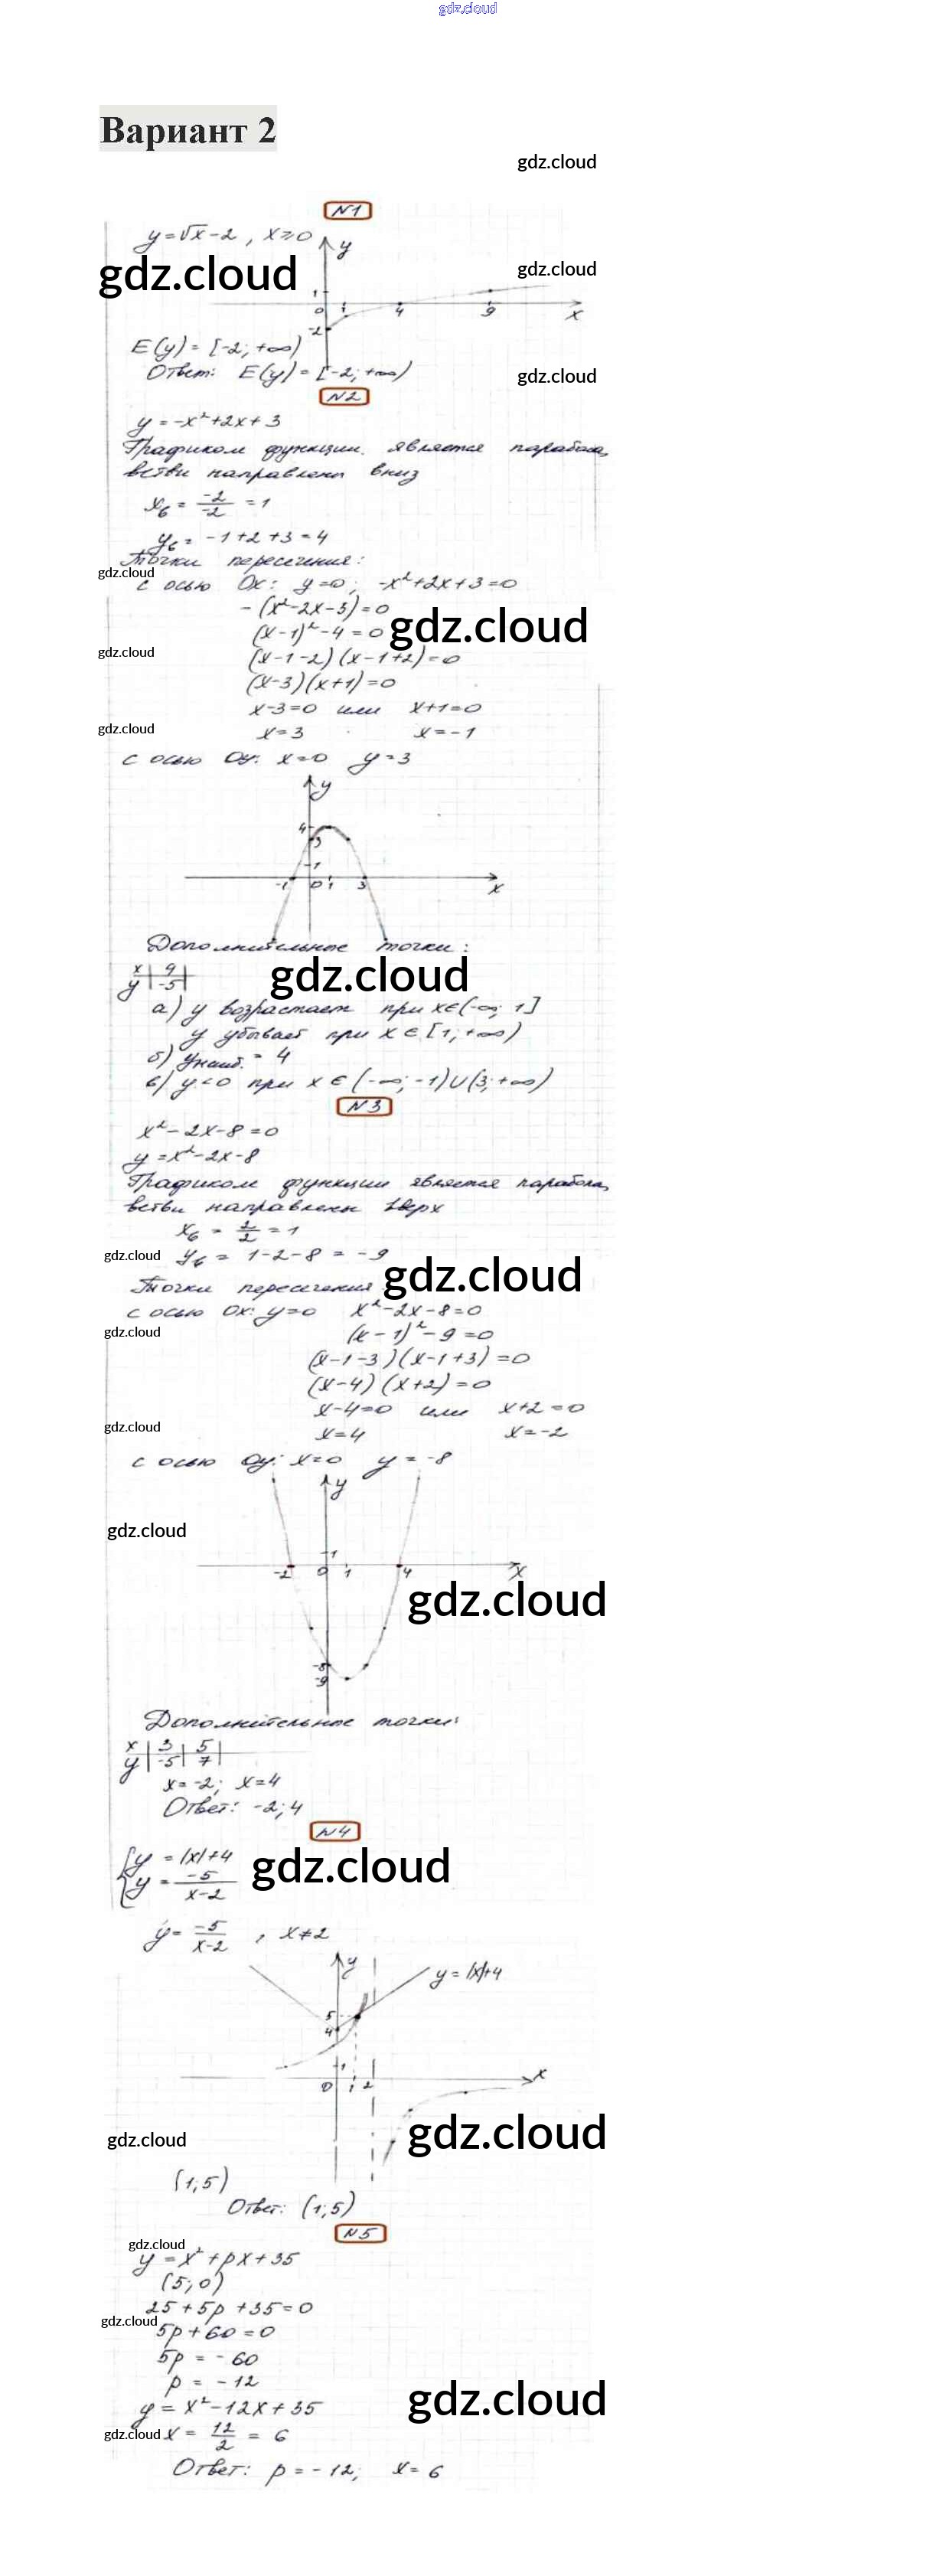 gdz.cloud
Вариант 2
gdz.cloud
N1
y = √x - 2 , x ≥ 0
y
gdz.cloud
gdz.cloud
1
0 1 4 9 x
-2
E(y) = [-2; +∞)
Ответ: E(y) = [-2; +∞)
gdz.cloud
N2
y = -x² + 2x + 3
Графиком функции является парабола,
ветви направлены вниз
xв = -2/-2 = 1
yв = -1 + 2 + 3 = 4
Точки пересечения:
gdz.cloud
с осью Ox: y = 0; -x² + 2x + 3 = 0
-(x² - 2x - 3) = 0
(x - 1)² - 4 = 0
gdz.cloud
gdz.cloud
(x - 1 - 2)(x - 1 + 2) = 0
(x - 3)(x + 1) = 0
x - 3 = 0 или x + 1 = 0
gdz.cloud
x = 3 x = -1
с осью Oy: x = 0 y = 3
y
4
3
1
-1 0 1 3 x
Дополнительные точки:
gdz.cloud
x | 4 |
y | -5 |
а) y возрастает при x ∈ (-∞; 1]
y убывает при x ∈ [1; +∞)
б) yнаиб. = 4
в) y < 0 при x ∈ (-∞; -1) ∪ (3; +∞)
N3
x² - 2x - 8 = 0
y = x² - 2x - 8
Графиком функции является парабола,
ветви направлены вверх
xв = 2/2 = 1
gdz.cloud
yв = 1 - 2 - 8 = -9
gdz.cloud
Точки пересечения
с осью Ox: y = 0 x² - 2x - 8 = 0
gdz.cloud
(x - 1)² - 9 = 0
(x - 1 - 3)(x - 1 + 3) = 0
(x - 4)(x + 2) = 0
x - 4 = 0 или x + 2 = 0
gdz.cloud
x = 4 x = -2
с осью Oy: x = 0 y = -8
y
gdz.cloud
1
-2 0 1 4 x
gdz.cloud
-8
-9
Дополнительные точки:
x | 3 | 5 |
y | -5 | 7 |
x = -2; x = 4
Ответ: -2; 4
N4
{ y = |x| + 4
gdz.cloud
y = -5/(x - 2)
y = -5/(x - 2) , x ≠ 2
y
y = |x| + 4
5
4
1
0 1 2 x
gdz.cloud
gdz.cloud
(1; 5)
Ответ: (1; 5)
N5
gdz.cloud
y = x² + px + 35
(5; 0)
25 + 5p + 35 = 0
gdz.cloud
5p + 60 = 0
5p = -60
p = -12
gdz.cloud
y = x² - 12x + 35
gdz.cloud
x = 12/2 = 6
Ответ: p = -12; x = 6